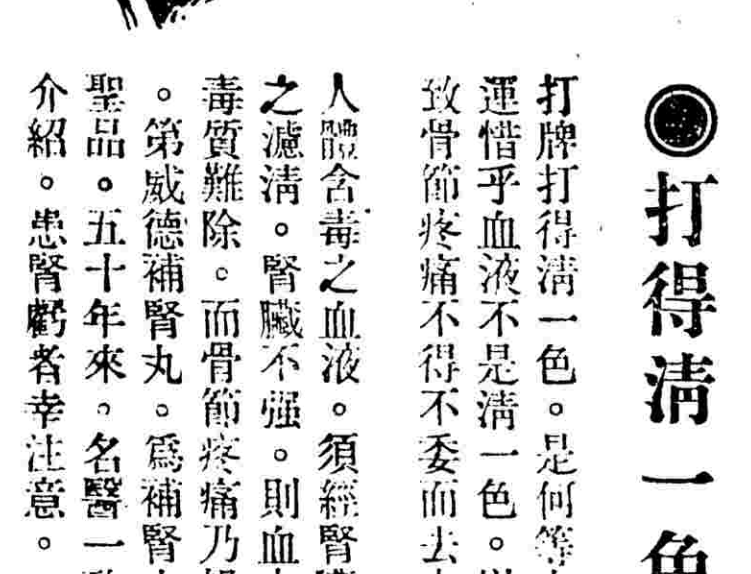 ◉打得清一色
打牌打得清一色。是何等
運惜乎血液不是清一色。
致骨節疼痛不得不委而去
人體含毒之血液。須經腎
之濾清。腎臟不强。則血
毒質難除。而骨節疼痛乃
。第威德補腎丸。爲補腎
聖品。五十年來。名醫一
介紹。患腎虧者幸注意。